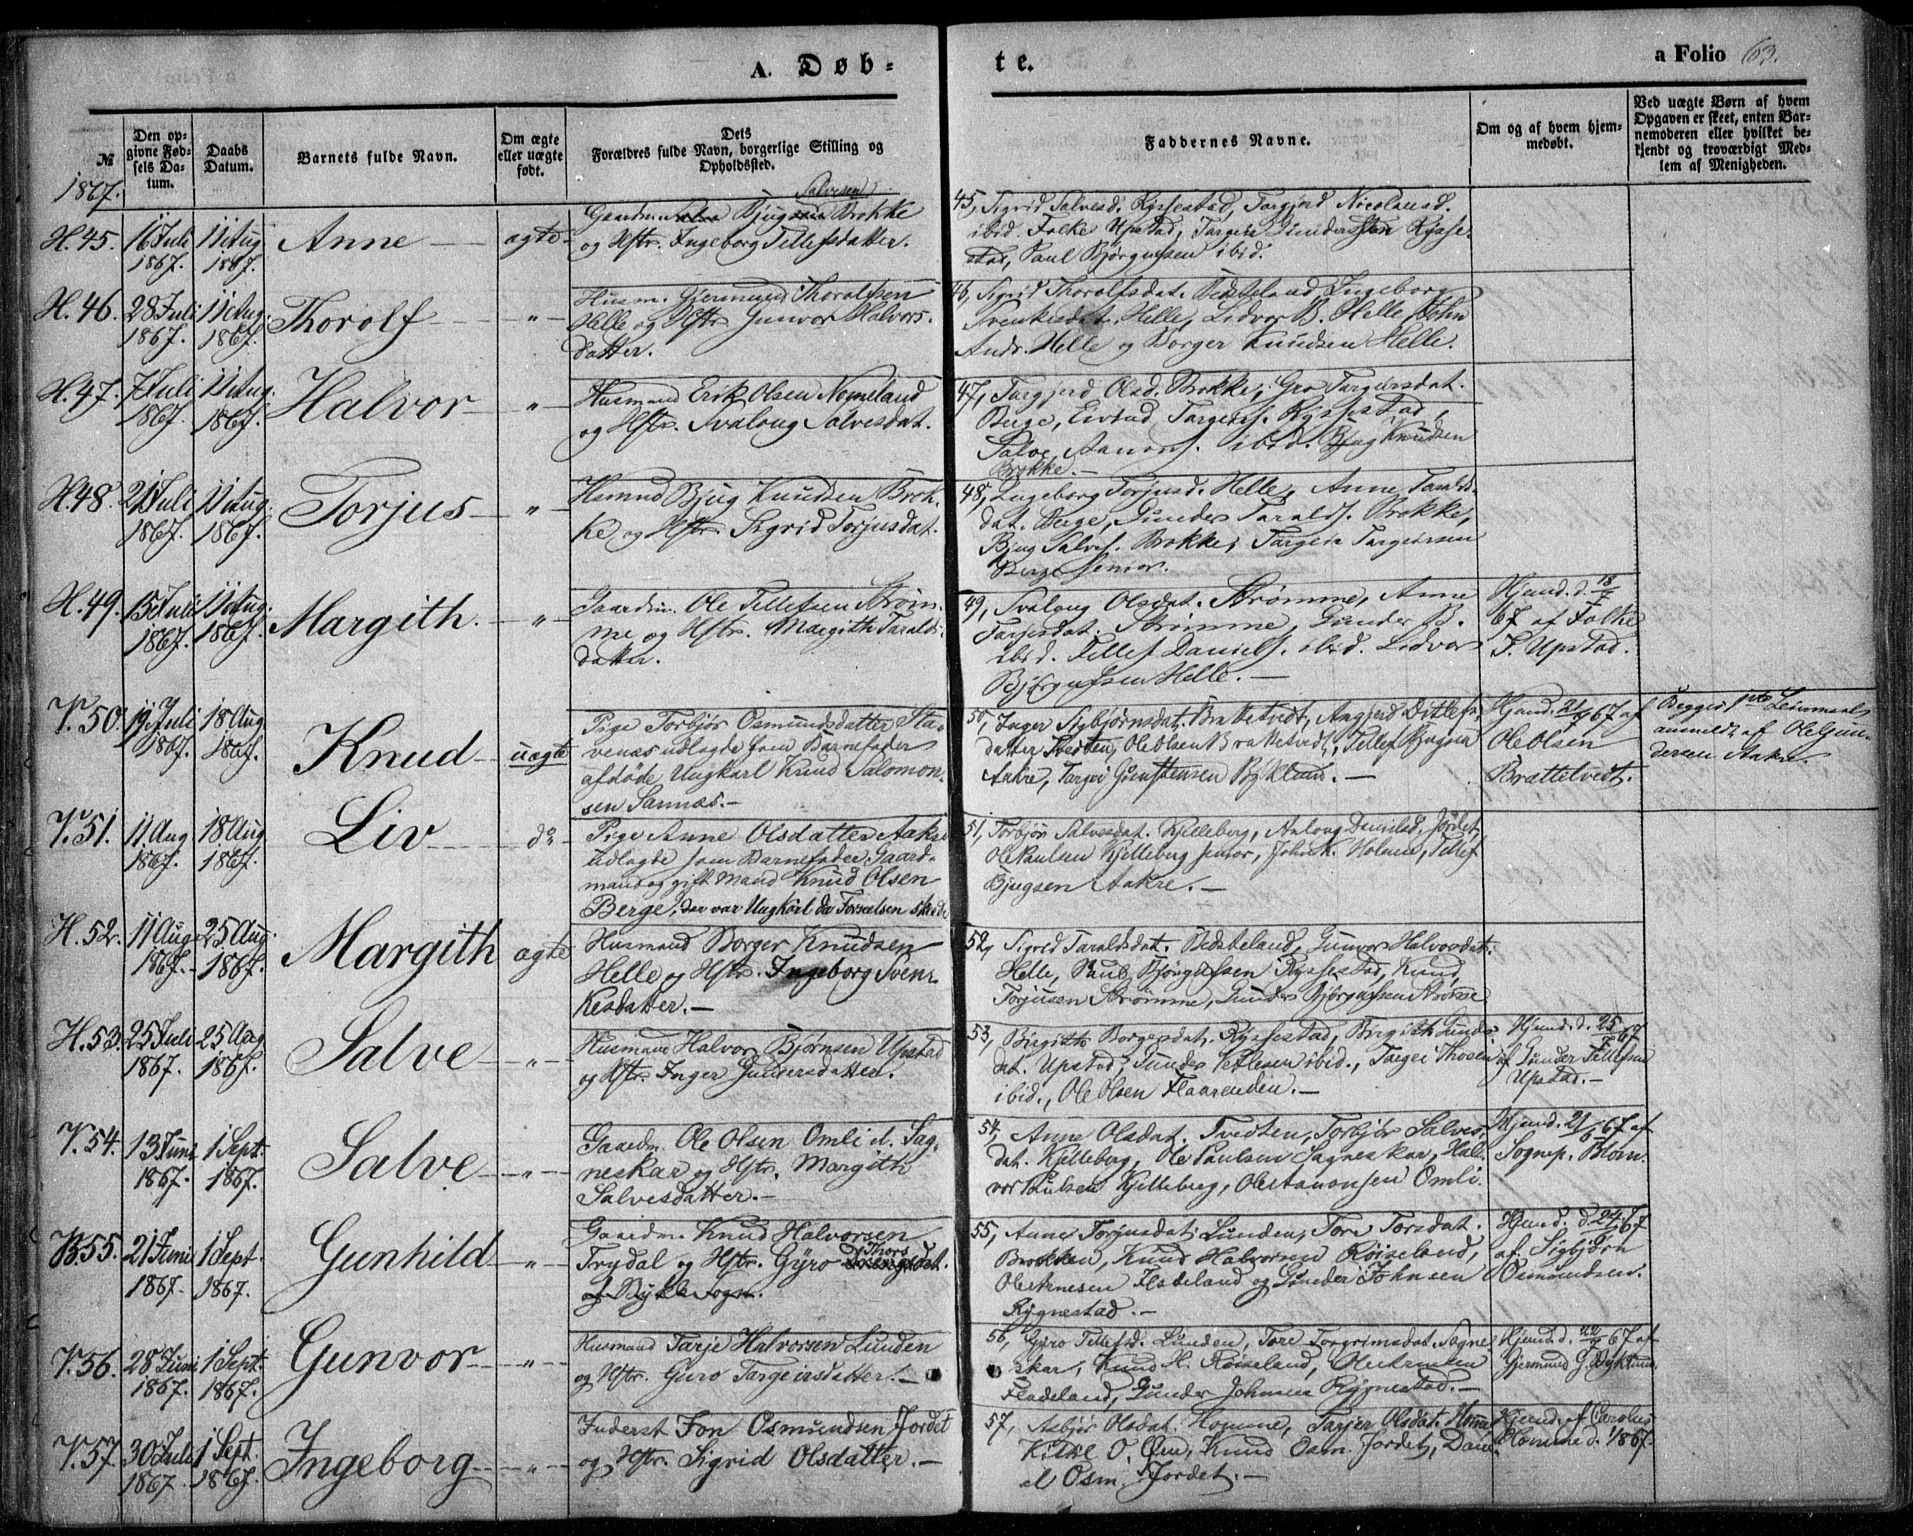 A. Døb-
te.
a Folio 63.
№
Den op-
givne Fød-
sels Da-
tum.
Daabs
Datum.
Barnets fulde Navn.
Om ægte
eller uægte
født.
Dets
Forældres fulde Navn, borgerlige Stilling og
Opholdssted.
Faddernes Navne.
Om og af hvem hjem-
medøbt.
Ved uægte Børn af hvem
Opgaven er skeet, enten Bar-
nemoderen eller hvilket be-
kjendt og troværdigt Med-
lem af Menigheden.
1867.
H. 45.
16 Juli
1867.
11 Aug.
1867.
Anne
ægte
Salvesen
Gaardm. Bjug Brokke
og Hstr. Ingeborg Tellefsdatter.
45, Sigrid Salvesd. Ryssestad, Targjerd Nicolausd.
ibid. Folke Upstad, Targeir Gundersen Rysse-
stad, Paul Bjørgufsen ibid.
H. 46.
28 Juli
1867.
11 Aug.
1867.
Thorolf
"
Husm. Gjermund Thorolfsen
Helle og Hstr. Gunvor Halvors-
datter.
46, Sigrid Thorolfsdat. Bedsteland, Ingeborg
Svenkesdat. Helle, Lidvor B. Helle, John
Andr. Helle og Borger Knudsen Helle.
H. 47.
7 Juli
1867.
11 Aug.
1867.
Halvor
"
Husmand Erik Olsen Nomeland
og Hstr. Svalong Salvesdat.
47, Targjerd Olsd. Brokke, Gro Targeirsdat.
Berge, Eivind Targeirs. Ryssestad,
Salve Aanons. ibid. Bjug Knudsen
Brokke.
H. 48.
21 Juli
1867.
11 Aug.
1867.
Torjus
"
Hsmnd Bjug Knudsen Brok-
ke og Hstr. Sigrid Torjusdat.
48, Ingeborg Torjusd. Helle, Anne Taralds-
dat. Berge, Gunder Taralds. Brokke,
Bjug Salves. Brokke, Targeir Targeirsen
Berge senior.
H. 49.
15 Juli
1867.
11 Aug.
1867.
Margith.
"
Gaardm. Ole Tellefsen Strøm-
me og Hstr. Margith Taralds-
datter.
49, Svalong Olsdat. Strømme, Anne
Tarjesdat. Strømme, Gunder B.
ibid. Tellef Daniels. ibid. Lidvor
Bjørgufsen Helle.
Hjmd. d. 18/7
67 af Folke
T. Upstad.
V. 50.
19 Juli
1867.
18 Aug
1867.
Knud
uægte
Pige Torbjør Osmundsdatter Sta-
venæs udlagde som Barnefader
afdøde Ungkarl Knud Salomon-
sen Sannæs.
50, Inger Sigbjørnsdat. Brattetvedt, Angjerd Ditlefs-
datter Tvedten, Ole Olsen Brattetvedt, Tellef Bjugsen
Aakre, Targei Gunstensen Byklund.
Hjmd. 21/7 67 af
Ole Olsen
Brattetvedt.
Begges 1ste Leiermaal
anmeldt af Ole Gun-
dersen Aakre.
V. 51.
11 Aug
1867.
18 Aug
1867.
Liv
do
Pige Anne Olsdatter Aakre
udlagde som Barnefader Gaard-
mand og gift Mand Knud Olsen
Berge, der var Ungkarl da Forseelsen skede
51, Torbjør Salvesdat. Kjelleberg, Anlong Danielsd. Jordet,
Ole Paulsen Kjelleberg senior, Joh. K. Holmen, Tellef
Bjugsen Aakre.
H. 52.
11 Aug.
1867.
25 Aug.
1867.
Margith
ægte
Husmand Borger Knudsen
Helle og Hstr. Ingeborg Sven-
kesdatter.
52, Sigrid Taraldsdat. Bedsteland, Gunvor Halvorsdat.
Helle, Paul Bjørgufsen Ryssestad, Knud
Torjusen Strømme, Gunder Bjørgufsen Strømme
H. 53.
25 Juli
1867.
25 Aug
1867.
Salve
"
Husmand Halvor Bjørnsen Upstad
og Hstr. Inger Gundersdatter.
53, Birgitte Borgersdat. Ryssestad, Birgith Gunders-
dat. Upstad, Gunder Ketelsen ibid., Targei Thosen
ibid., Ole Olsen Flaarenden.
Hjmd. d. 25/7 67
af Gunder Tellefsen
Upstad.
V. 54.
13 Juni
1867.
1 Sept.
1867.
Salve
"
Gaardm. Ole Olsen Omli el. Sag-
neskar og Hstr. Margith
Salvesdatter.
54, Anne Olsdat. Tvedten, Torbjør Salves-
dat. Kjelleberg, Ole Paulsen Sagneskar, Hal-
vor Paulsen Kjelleberg, Ole Aanonsen Omli
Hjmd. 21/6 67 af
Sognep. Blom.
B. 55.
21 Juni
1867.
1 Sept
1867.
Gunhild
"
Gaardm. Knud Halvorsen
Trydal og Hstr. Gyro Thorsdat.
af Bykle Sogn.
55, Anne Torjusdat. Lunden, Tore Torsdat.
Brokken, Knud Halvorsen Røiseland,
Ole Arnesen Fladeland og Gunder Johnsen
Rygnestad.
Hjmd. d. 24/6 67
af Sigbjørn
Osmundsen.
V. 56.
28 Juni
1867.
1 Sept.
1867.
Gunvor
"
Husmand Tarje Halvorsen Lunden
og Hstr. Guro Targeirsdatter.
56, Gyro Tellefsd. Lunden, Tore Torgrimsdat. Sagne-
skar, Knud H. Røiseland, Ole Arnesen
Fladeland, Gunder Johnsen Rygnestad.
Hjemd. d. 22/7 67 af
Gjermund G. Byklund.
V. 57.
30 Juli
1867.
1 Sept.
1867.
Ingeborg
"
Inderst Jon Osmundsen Jordet
og Hstr. Sigrid Olsdatter.
57, Asbjør Olsdat. Homme, Tarjer Olsdat. Homme
Kittel O. Øen, Knud Osm. Jordet, Dani-
el Osm. Jordet.
Hjmd. af Carolus
Homme d. 1/8 67.